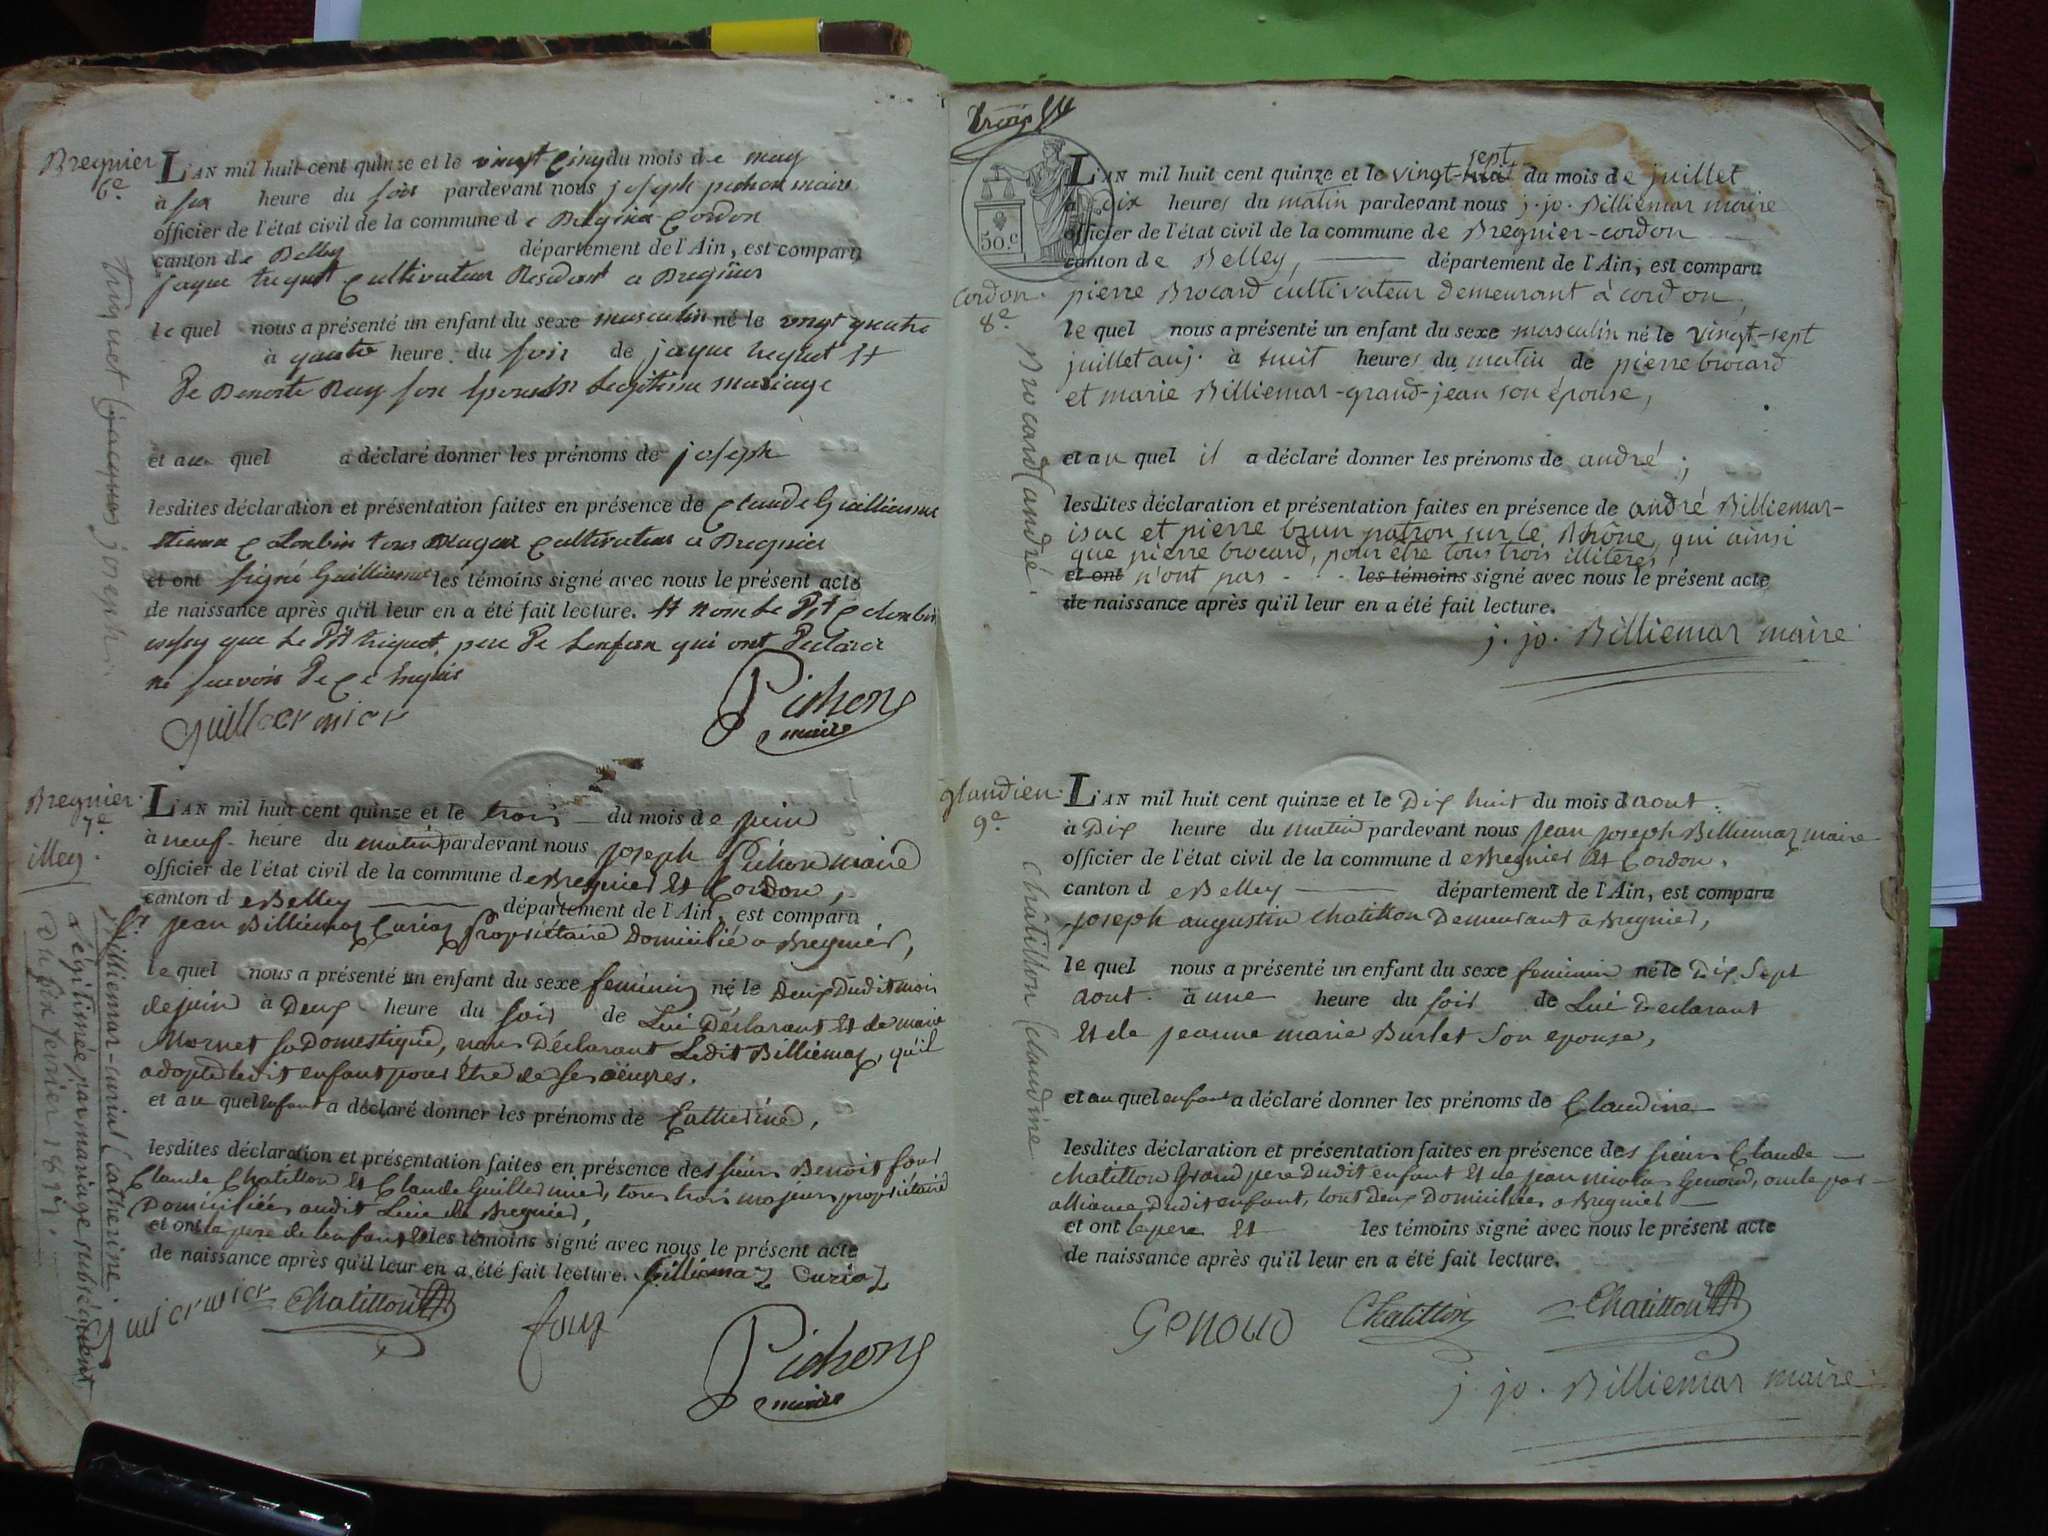 Bregnier
6e
L'AN mil huit cent quinze et le vingt cinq du mois de may
à six heure du soir pardevant nous joseph pichon maire
officier de l'état civil de la commune de Cordon
canton de Belley département de l'Ain, est comparu
jaque triquet cultivateur Residant a Bregnier
le quel nous a présenté un enfant du sexe masculin né le vingt quatre
à quatre heure du soir de jaque triquet et
De Benoite Ray son Epouse legitime mariage
et au quel a déclaré donner les prénoms de joseph
lesdites déclaration et présentation faites en présence de Claude Guilliermier
Colonbin tous cultivateur a Bregnier
et ont signé les témoins signé avec nous le présent acte
de naissance après qu'il leur en a été fait lecture. Et non le Dt Colonbin
que le Dt triquet pere De Lenfan qui ont Déclaré
ne scavoir De ce Enquis
Guillermier
Pichon
maire
triquet (jacques joseph.
Bregnier.
7e
illeg.
L'AN mil huit cent quinze et le trois du mois de juin
à neuf heure du matin pardevant nous joseph Pichon maire
officier de l'état civil de la commune de Bregnier Et Cordon,
canton de Belley département de l'Ain, est comparu
Sr jean Billiemaz Curiaz Propriétaire Domicilié a Bregnier,
le quel nous a présenté un enfant du sexe feminin né le Deux Dudit moi
de juin à Deux heure du soir de Lui Déclarant Et de marie
Mornet sa Domestique, nous Déclarant Ledit Billiemaz, qu'il
adopte ledit enfant pour être de ses œuvres.
et au quel enfant a déclaré donner les prénoms de Catherine,
lesdites déclaration et présentation faites en présence des sieurs Benoit four
Claude Chatillon Et Claude Guillermier, tous trois majeurs propriétaire
Domiciliées audit Lieu de Bregnier,
et ont le pere de lenfant Et les témoins signé avec nous le présent acte
de naissance après qu'il leur en a été fait lecture. Billiemaz Curiaz
Chatillon
four
Pichon
maire
Billiemar-curial (catherine)
Légitimée par mariage subséquent
Du six fevrier
trois
50.c
L'AN mil huit cent quinze et le vingt-huit sept du mois de juillet
à dix heures du matin pardevant nous j. jo. Billiemar maire
officier de l'état civil de la commune de Bregnier-cordon
canton de Belley, département de l'Ain, est comparu
pierre Brocard cultivateur demeurant à cordon,
cordon.
8e
Brocard (andré.
le quel nous a présenté un enfant du sexe masculin né le vingt-sept
juillet auj. à huit heures du matin de pierre brocard
et marie Billiemar-grand-jean son épouse,
et au quel il a déclaré donner les prénoms de andré ;
lesdites déclaration et présentation faites en présence de andré Billiemar-
isac et pierre brun patron sur le Rhône, qui ainsi
que pierre brocard, pour être tous trois illitérés,
et ont n'ont pas les témoins signé avec nous le présent acte
de naissance après qu'il leur en a été fait lecture.
j. jo. Billiemar maire
glandieu.
9e
Châtillon (claudine
L'AN mil huit cent quinze et le Dix huit du mois d'aout.
à Dix heure du matin pardevant nous jean joseph Billiemaz maire
officier de l'état civil de la commune de Bregnier Et Cordon,
canton de Belley département de l'Ain, est comparu
joseph augustin Chatillon Demeurant a Bregnier,
le quel nous a présenté un enfant du sexe feminin né le Dix Sept
aout. à une heure du soir de Lui Déclarant
Et de jeanne marie Burlet son epouse,
et au quel enfant a déclaré donner les prénoms de Claudine
lesdites déclaration et présentation faites en présence des sieurs Claude
Chatillon Grand pere Dudit enfant Et de jean nicolas Genoud, oncle par
alliance Dudit enfant, tout deux Domiciliées a Bregnier
et ont le pere Et les témoins signé avec nous le présent acte
de naissance après qu'il leur en a été fait lecture.
Genoud Chatillon Chatillon
j. jo. Billiemar maire